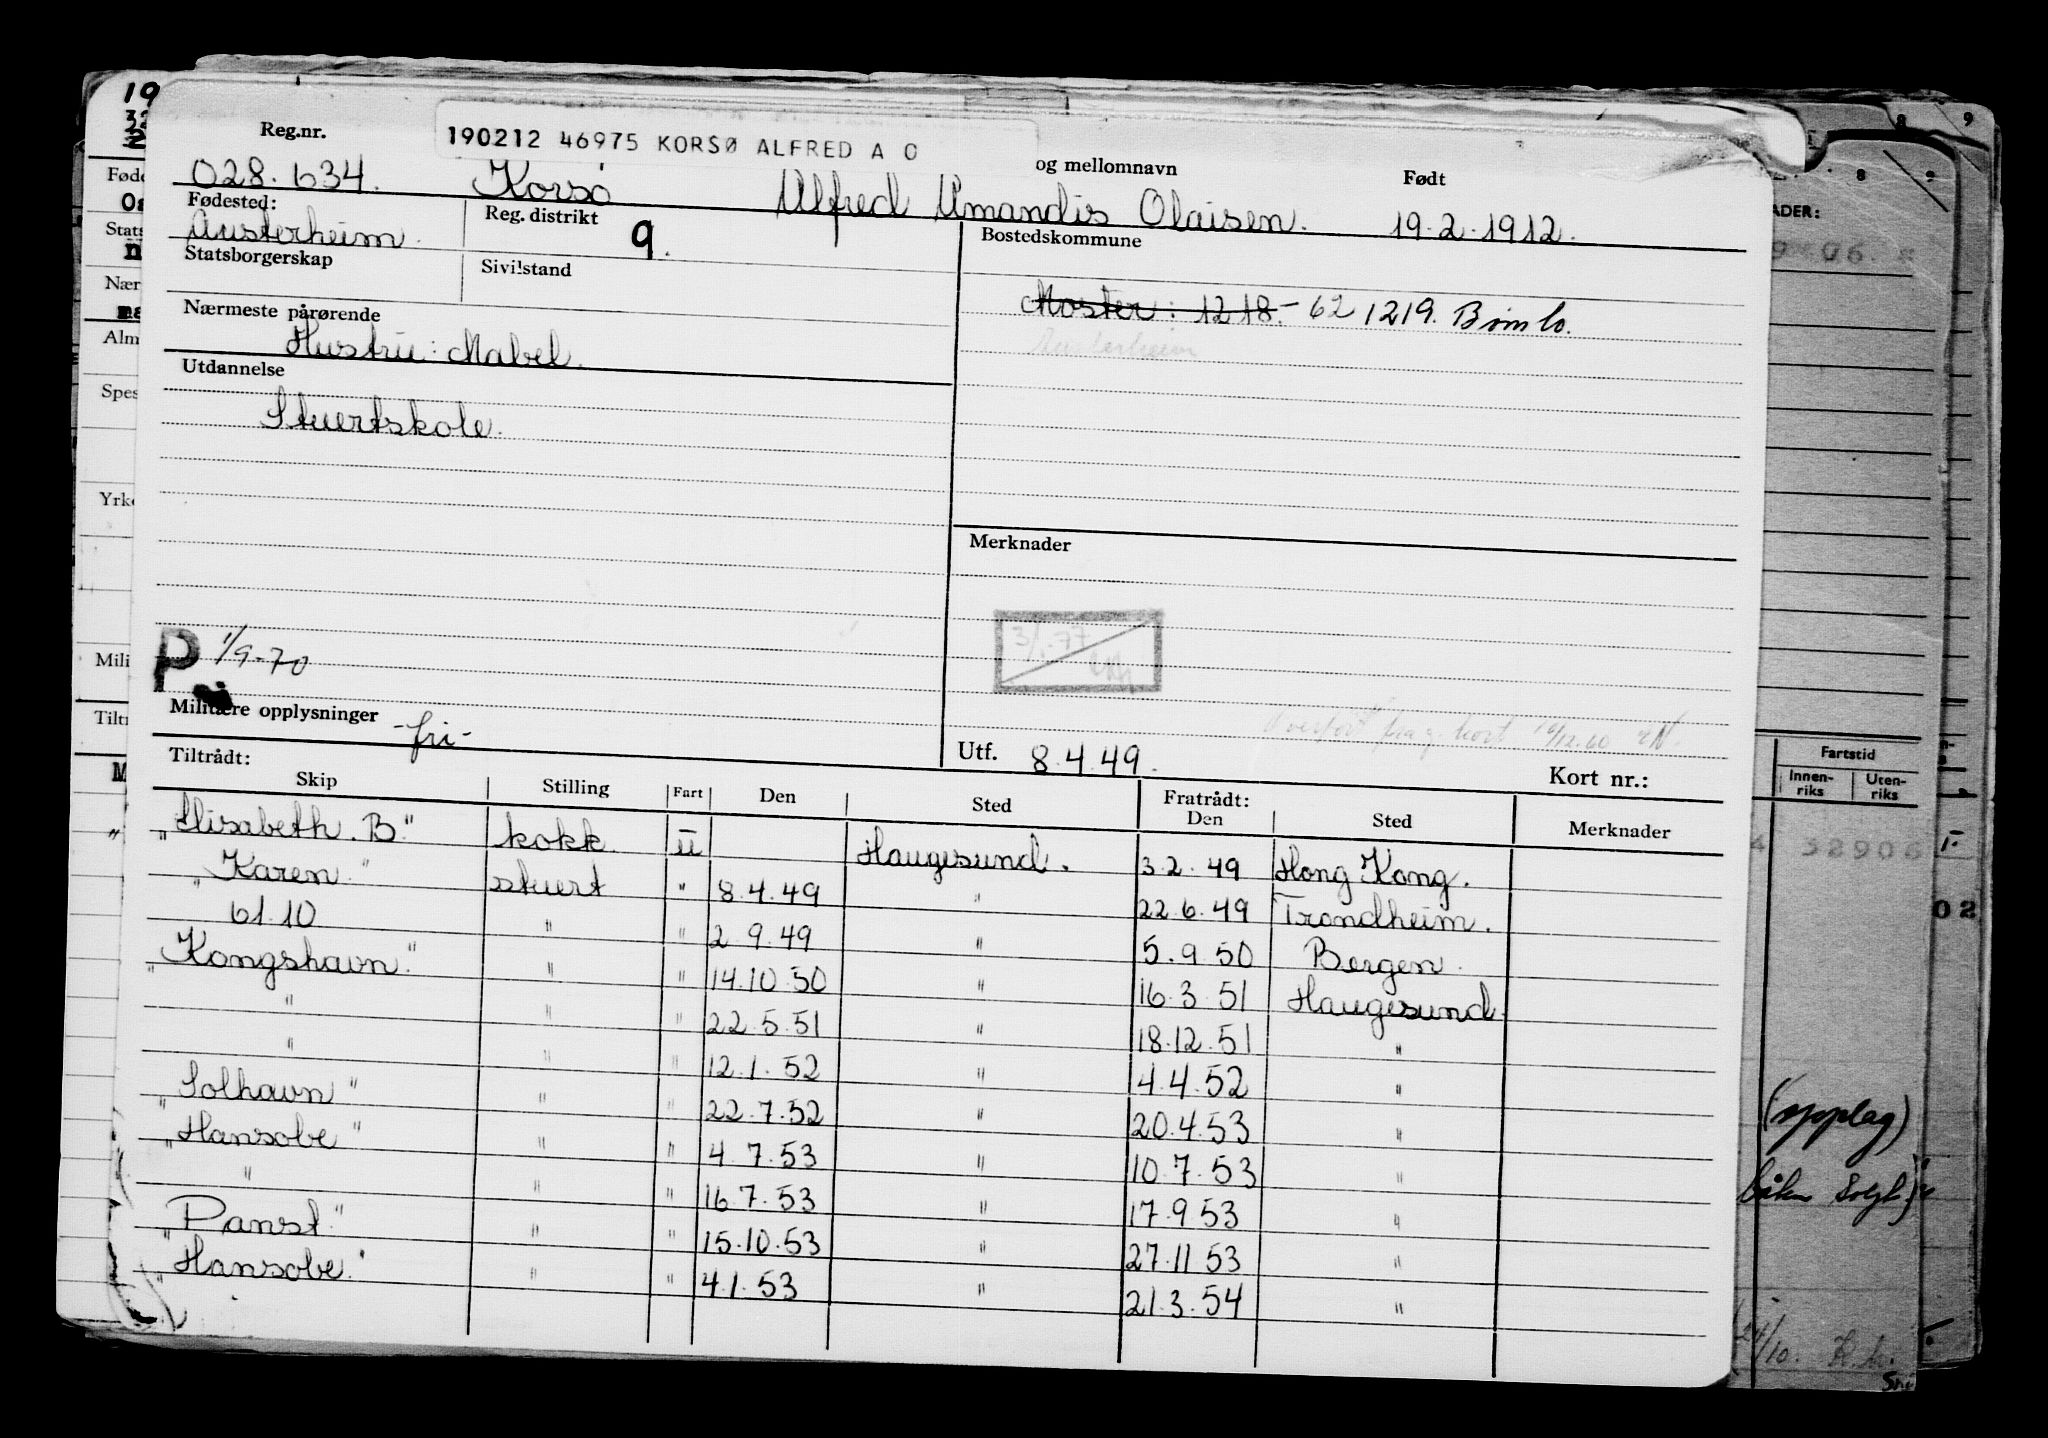 190212 46975 KORSØ ALFRED A O
Reg.nr. og mellomnavn Født
028.634. Korsø Alfred Amandis Olaisen. 19.2.1912.
Fødested: Reg. distrikt Bostedskommune
Austerheim. 9.
Statsborgerskap Sivilstand
Moster: 1218.- 62 1219. Bømlo.
Nærmeste pårørende
Austerheim
Hustru: Mabel.
Utdannelse
Stuertskole.
Merknader
3/1-77
P 1/9-70
Militære opplysninger -fri-
Overført fra g. kort
Utf. 8.4.49.
Kort nr.:
Tiltrådt: Fratrådt:
Skip Stilling Fart Den Sted Den Sted Merknader
"Elisabeth. B." kokk. u Haugesund. 3.2.49 Hong Kong.
"Karen" stuert " 8.4.49 " 22.6.49 Trondheim.
61.10 " " 2.9.49 " 5.9.50 Bergen.
"Kongshavn." " " 14.10.50 " 16.3.51 Haugesund.
" " " 22.5.51 " 18.12.51 "
" " " 12.1.52 " 4.4.52 "
"Solhavn" " " 22.7.52 " 20.4.53 "
"Hansobe" " " 4.7.53 " 10.7.53 "
" " " 16.7.53 " 17.9.53 "
"Panst." " " 15.10.53 " 27.11.53 "
"Hansobe." " " 4.1.53 " 21.3.54 "
19
32
2
Føde
Stats
n
Nær
Alm
Spes
Yrke
Mili
Tiltr
M
"
8 9
ADER:
9 06
Fartstid
Innen-
riks
Uten-
riks
32906
1.-
02
(opplag)
Solgt)
24/10.